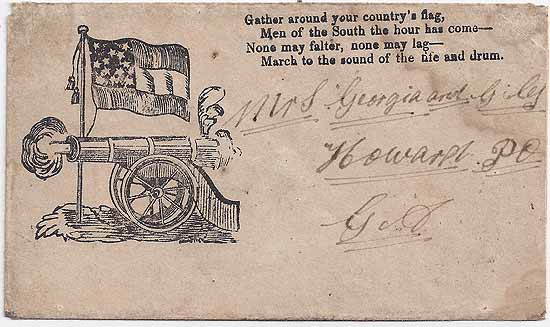 Gather around your country's flag,
Men of the South the hour has come—
None may falter, none may lag—
March to the sound of the fife and drum.
Mrs Georgia and G
Howard PO
GA